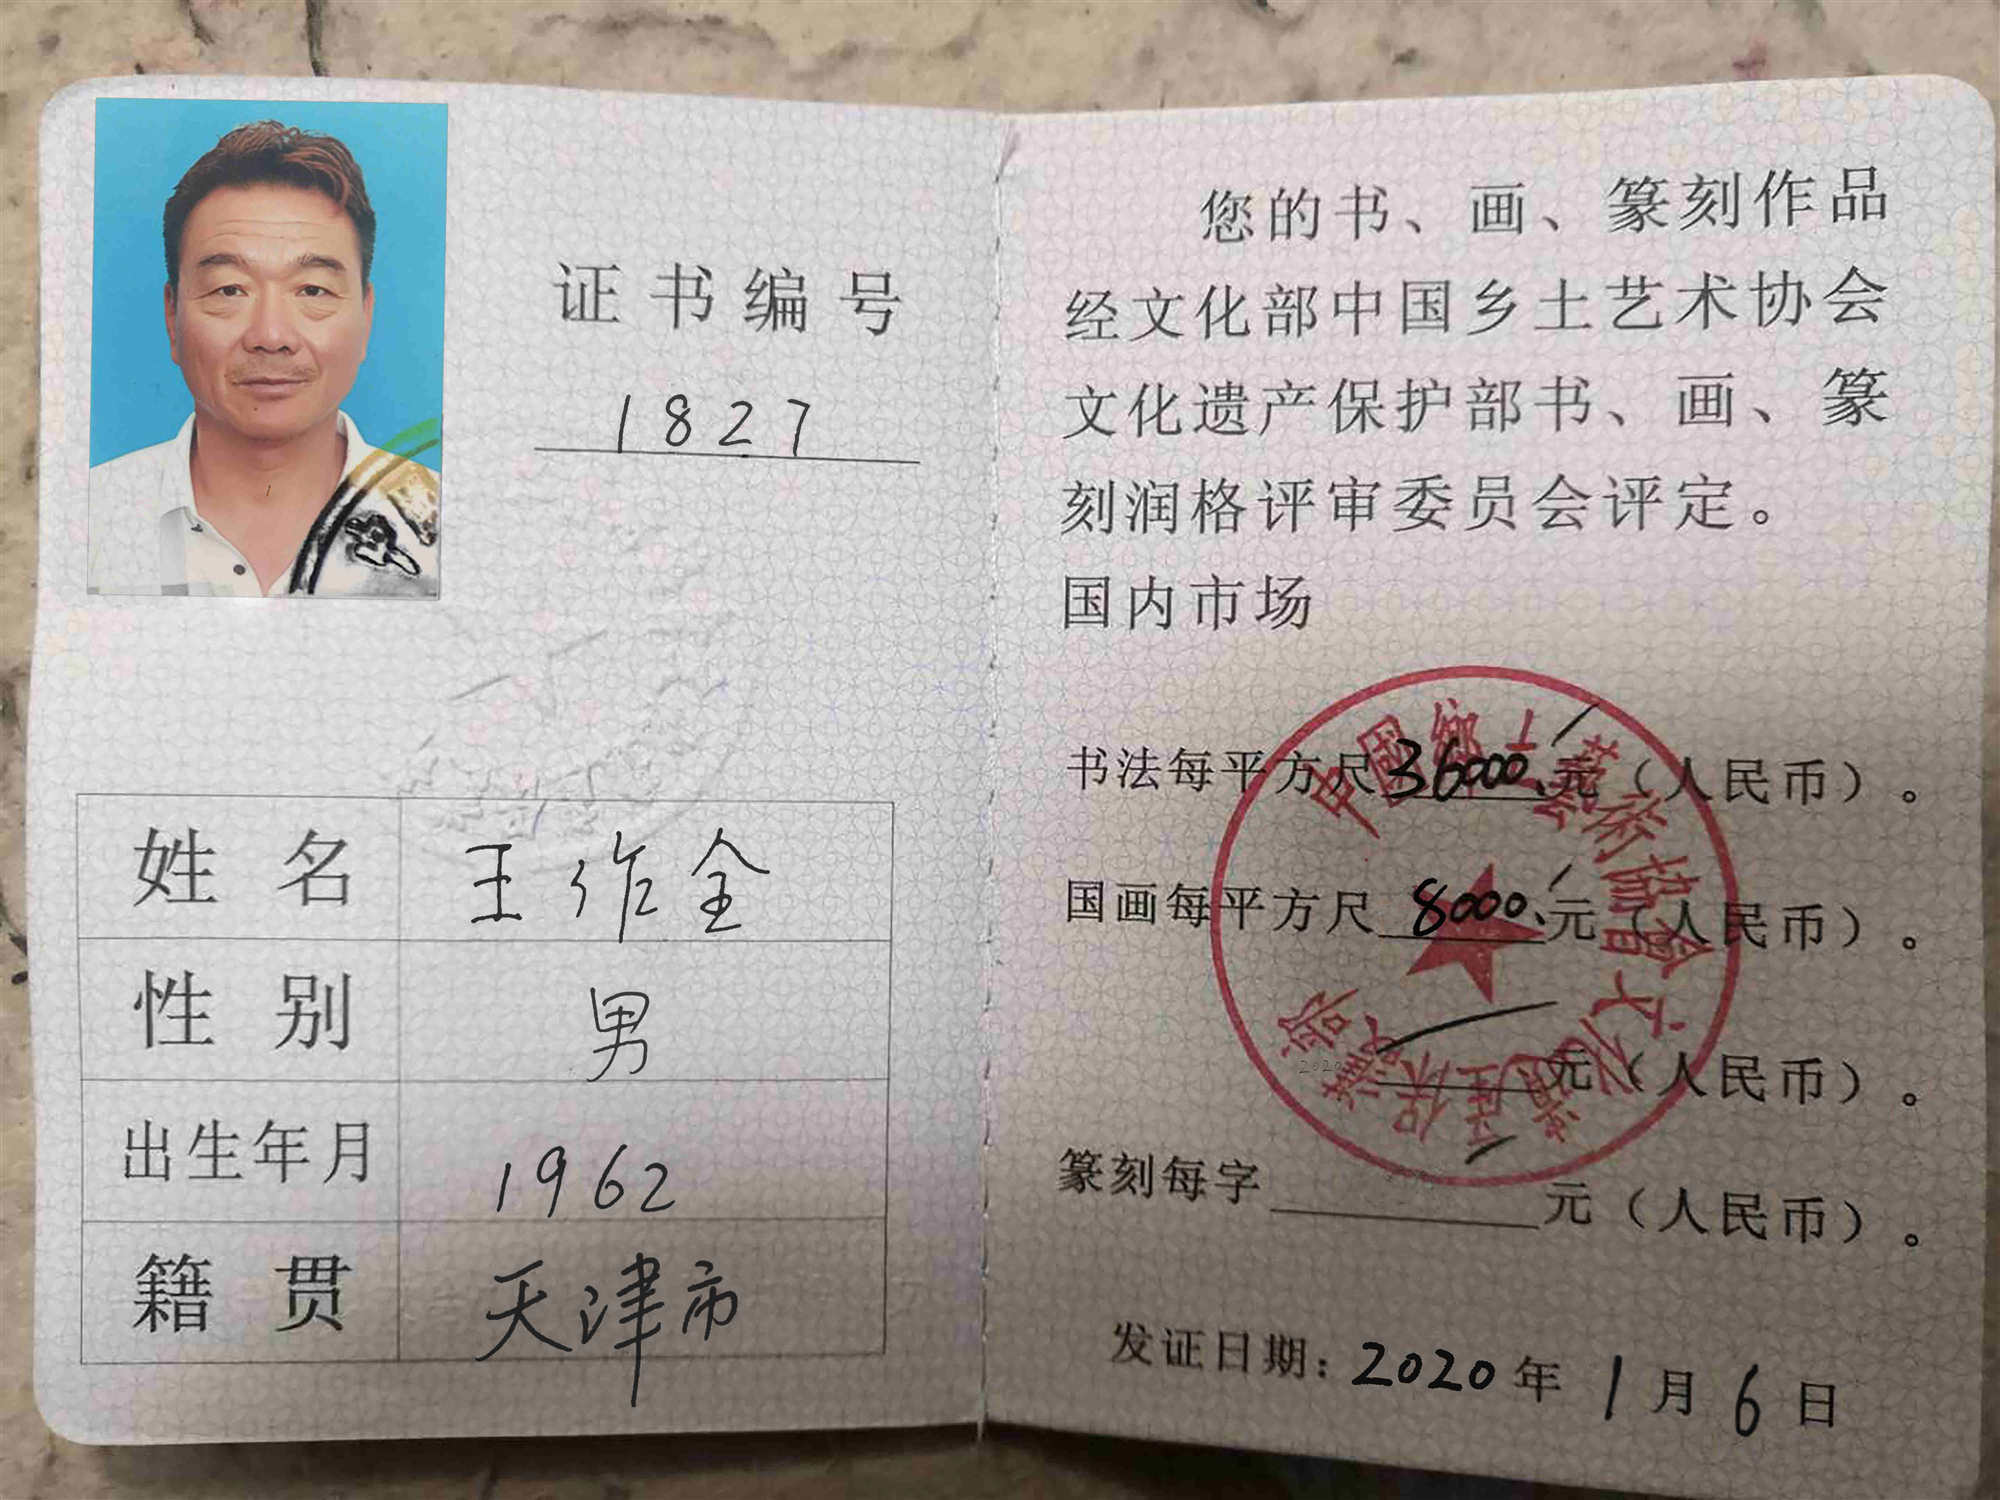 证书编号
1827
姓名 王作全
性别 男
出生年月 1962
籍贯 天津市
您的书、画、篆刻作品
经文化部中国乡土艺术协会
文化遗产保护部书、画、篆
刻润格评审委员会评定。
国内市场
书法每平方尺36000元（人民币）。
国画每平方尺8000元（人民币）。
元（人民币）。
篆刻每字 元（人民币）。
发证日期：2020年1月6日
中國鄉土藝術協會文化遺產保護部